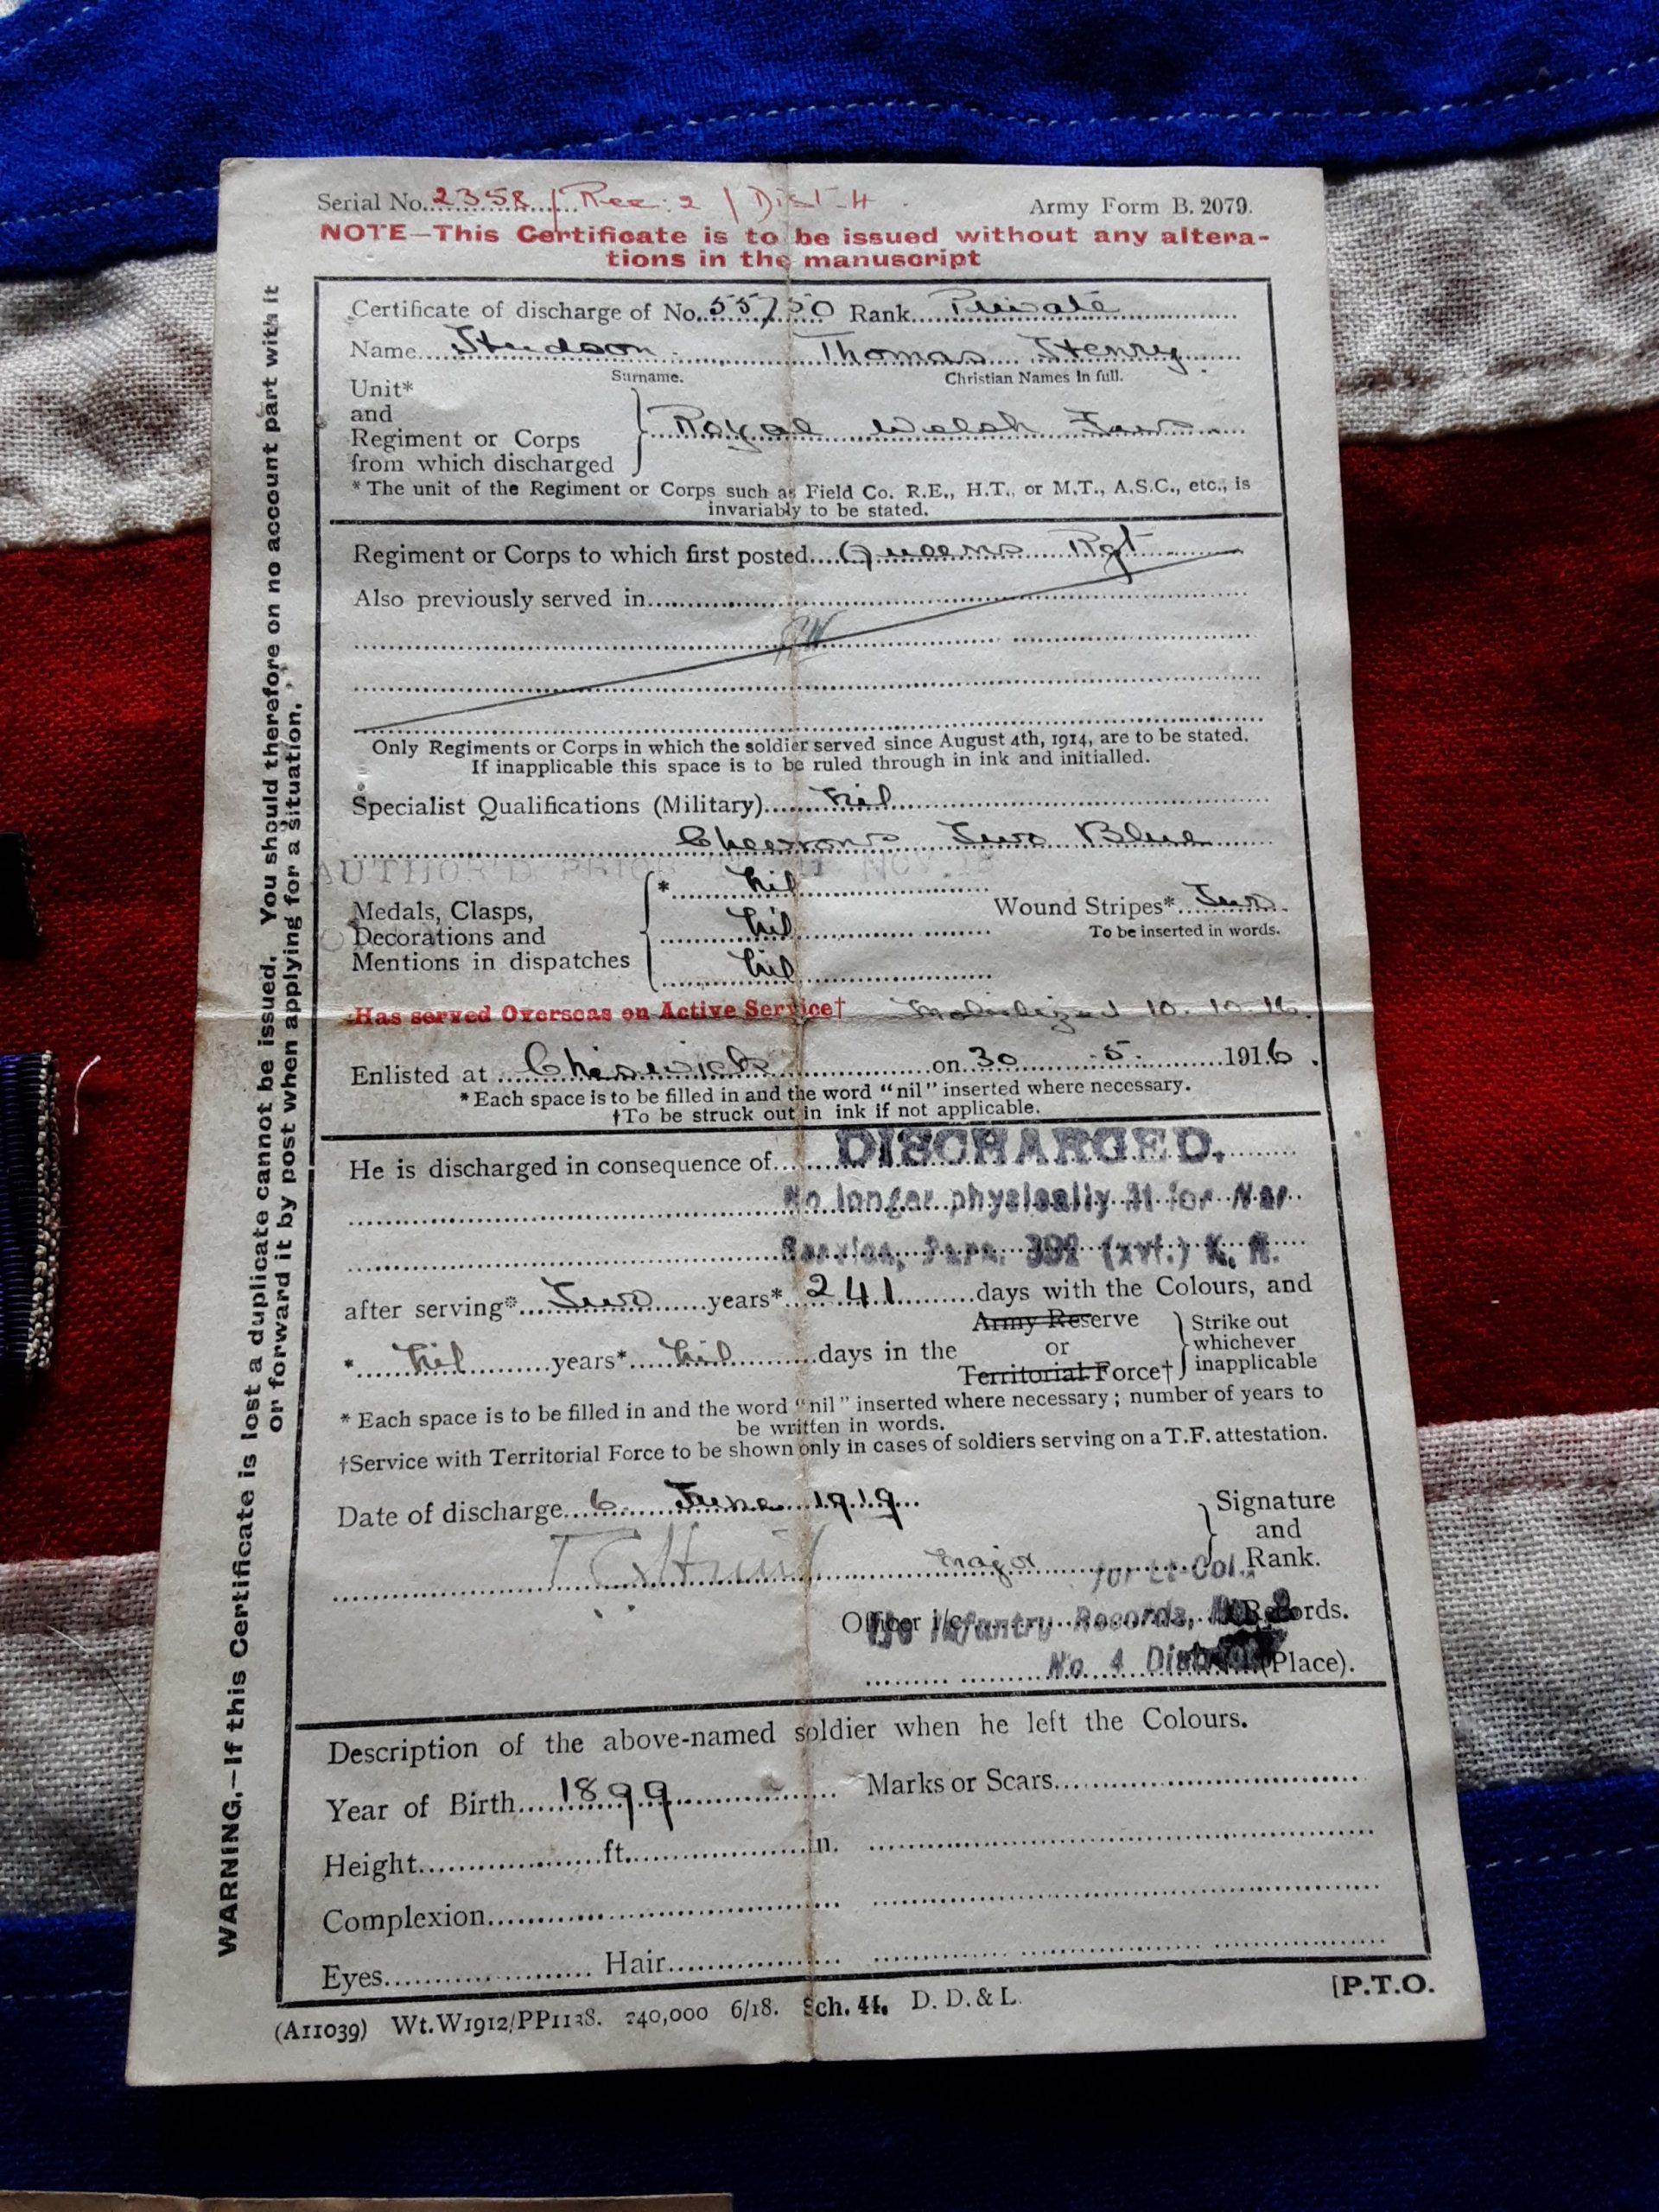 Serial No. 2358 / Rec: 2 / Dist 4. Army Form B. 2079.
NOTE—This Certificate is to be issued without any altera-
tions in the manuscript
Certificate of discharge of No. 55750 Rank Private
Name Hudson Thomas Henry.
Surname. Christian Names in full.
Unit*
and
Regiment or Corps
from which discharged
Royal Welsh Fus
* The unit of the Regiment or Corps such as Field Co. R.E., H.T., or M.T., A.S.C., etc., is
invariably to be stated.
Regiment or Corps to which first posted Queens Rgt
Also previously served in
Only Regiments or Corps in which the soldier served since August 4th, 1914, are to be stated.
If inapplicable this space is to be ruled through in ink and initialled.
Specialist Qualifications (Military) Nil
Chevrons Two Blue
AUTHOR'D PRIOR NOV.
Medals, Clasps,
Decorations and
Mentions in dispatches
* Nil
Nil
Nil
Wound Stripes* Two
To be inserted in words.
Has served Overseas on Active Service† Mobilized 10.10.16.
Enlisted at Chiswick on 30 . 5 . 1916.
* Each space is to be filled in and the word "nil" inserted where necessary.
†To be struck out in ink if not applicable.
He is discharged in consequence of DISCHARGED.
No longer physically fit for War
Service, Para. 392 (xvi.) K. R.
after serving* Two years* 241 days with the Colours, and
* Nil years* Nil days in the
Army Reserve
or
Territorial Force†
Strike out
whichever
inapplicable
* Each space is to be filled in and the word "nil" inserted where necessary; number of years to
be written in words.
†Service with Territorial Force to be shown only in cases of soldiers serving on a T.F. attestation.
Date of discharge 6 June 1919
Major for Lt-Col.
Signature
and
Rank.
Officer i/c Records.
i/c Infantry Records, No. 2
No. 4 District (Place).
Description of the above-named soldier when he left the Colours.
Year of Birth 1899 Marks or Scars
Height ft. in.
Complexion
Eyes Hair
(A11039) Wt.W1912/PP1138. 240,000 6/18. Sch. 44. D. D. & L. [P.T.O.
WARNING.—If this Certificate is lost a duplicate cannot be issued. You should therefore on no account part with it
or forward it by post when applying for a situation.